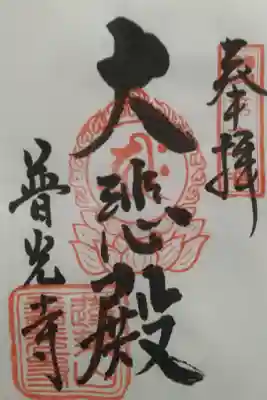 奉拝
大悲殿
普光寺